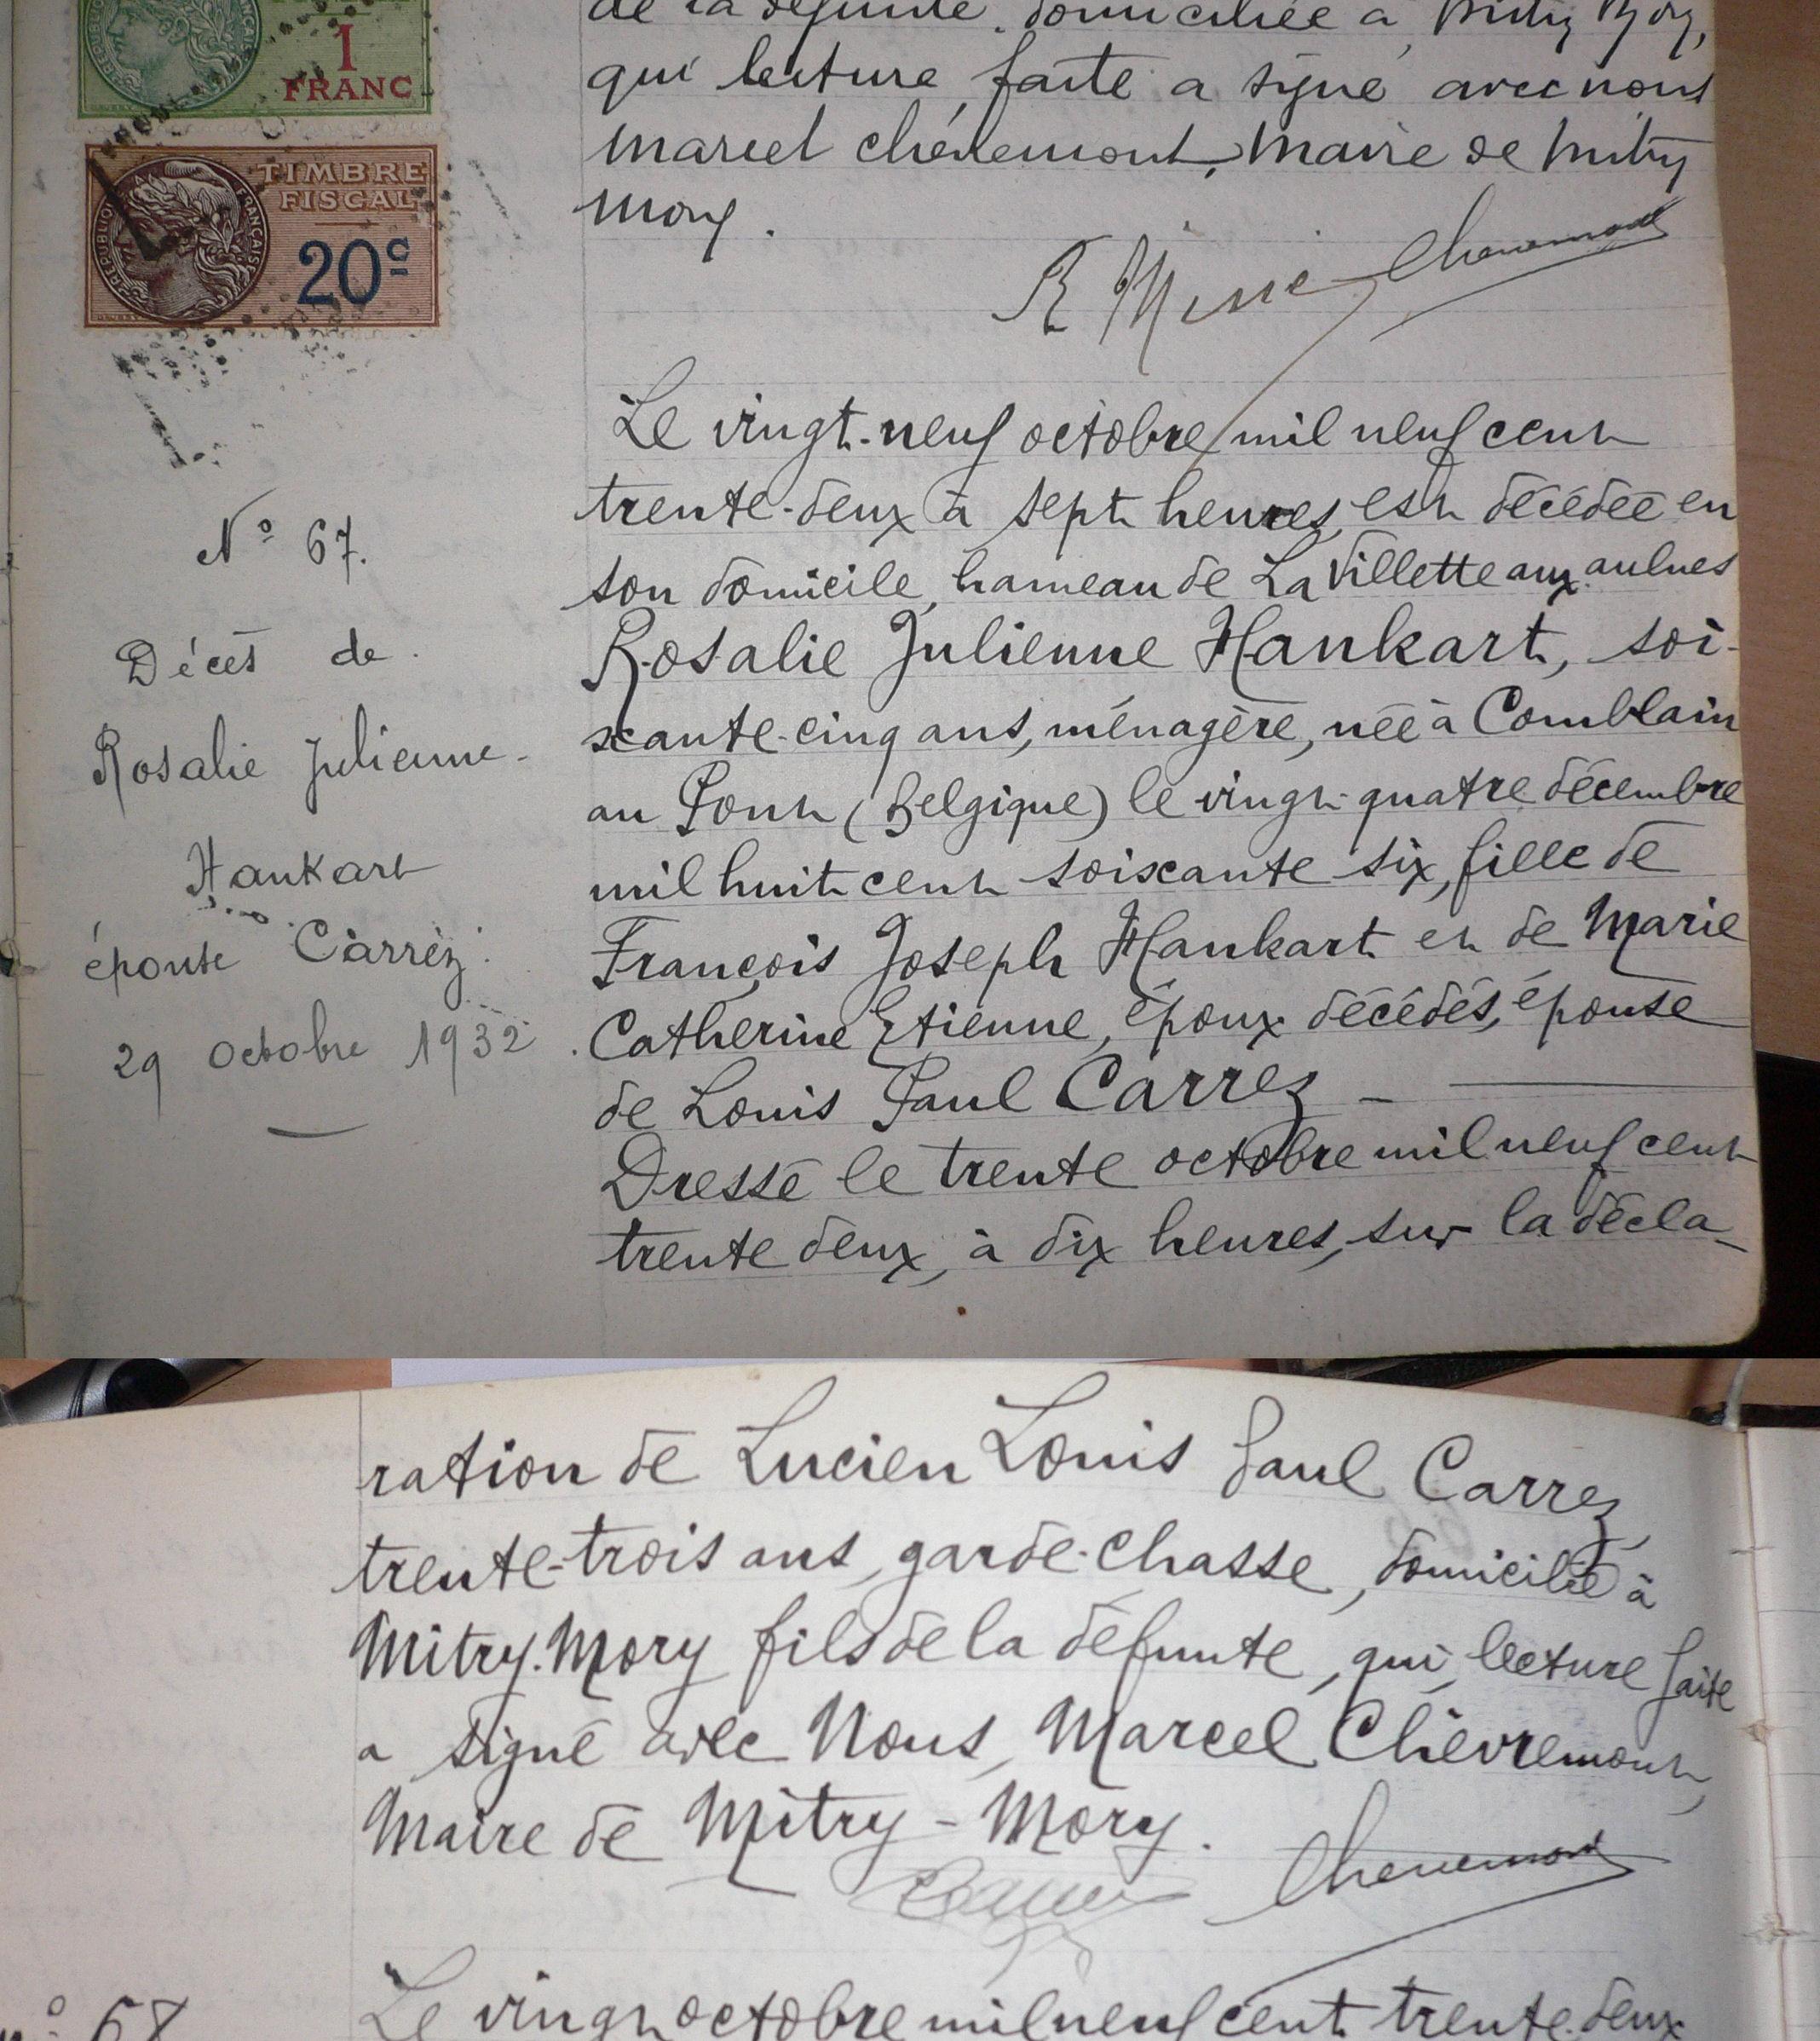 1
FRANC
TIMBRE
FISCAL
20c
de la défunte, domiciliée à Mitry Mory,
qui lecture faite a signé avec nous
Marcel Chèvremont, Maire de Mitry
Mory.
Chevremont
N° 67.
Décès de
Rosalie Julienne
Hankart
épouse Carrez
29 octobre 1932
Le vingt-neuf octobre mil neuf cent
trente-deux à sept heures, est décédée en
son domicile, hameau de La Villette aux aulnes
Rosalie Julienne Hankart, soi-
xante-cinq ans, ménagère, née à Comblain
au Pont (Belgique) le vingt-quatre décembre
mil huit cent soixante six, fille de
François Joseph Hankart et de Marie
Catherine Etienne, époux décédés, épouse
de Louis Paul Carrez -
Dressé le trente octobre mil neuf cent
trente deux, à dix heures, sur la décla-
ration de Lucien Louis Paul Carrez,
trente-trois ans, garde-chasse, domicilié à
Mitry-Mory fils de la défunte, qui, lecture faite
a signé avec Nous, Marcel Chèvremont,
Maire de Mitry-Mory.
Carrez Chevremont
N° 68
Le vingt octobre mil neuf cent trente-deux